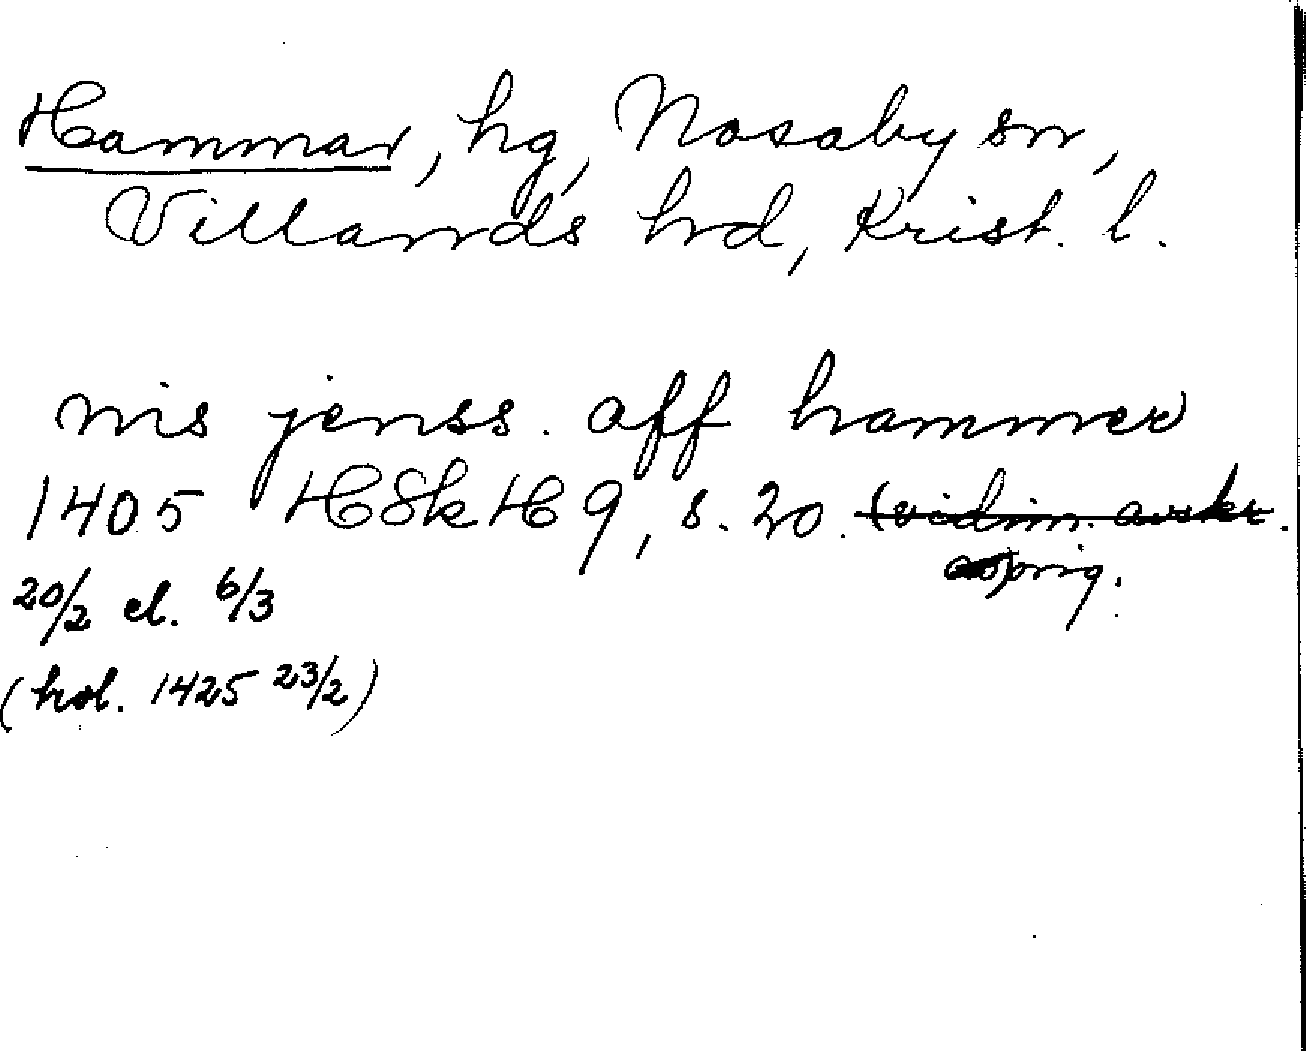 Hammar, hg, Nosaby sn,
Villands hrd, Krist. l.
nis jenss. aff hammer
1405 HSkH 9, s. 20. (vidim. avskr.
orig.
20/2 el. 6/3
(hol. 1425 23/2)